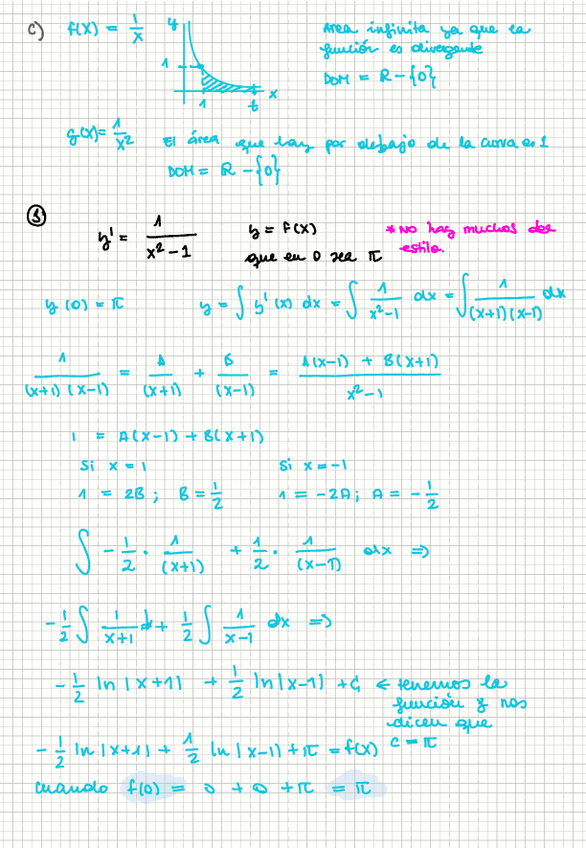 c) f(x) = 1/x
y
1
1 t x
Area infinita ya que la
función es divergente
DOM = R - {0}
g(x) = 1/x² El área que hay por debajo de la curva es 1
DOM = R - {0}
③
y' = 1/(x² - 1) y = f(x)
que en 0 sea π
* No hay muchos des
estilo.
y(0) = π y = ∫ y'(x) dx = ∫ 1/(x² - 1) dx = ∫ 1/((x+1)(x-1)) dx
1/((x+1)(x-1)) = A/(x+1) + B/(x-1) = (A(x-1) + B(x+1))/(x² - 1)
1 = A(x-1) + B(x+1)
Si x = 1 Si x = -1
1 = 2B ; B = 1/2 1 = -2A ; A = -1/2
∫ -1/2 · 1/(x+1) + 1/2 · 1/(x-1) dx ⇒
-1/2 ∫ 1/(x+1) d + 1/2 ∫ 1/(x-1) dx ⇒
-1/2 ln|x+1| + 1/2 ln|x-1| + C ← tenemos la
función y nos
dicen que
C = π
-1/2 ln|x+1| + 1/2 ln|x-1| + π = f(x)
cuando f(0) = 0 + 0 + π = π